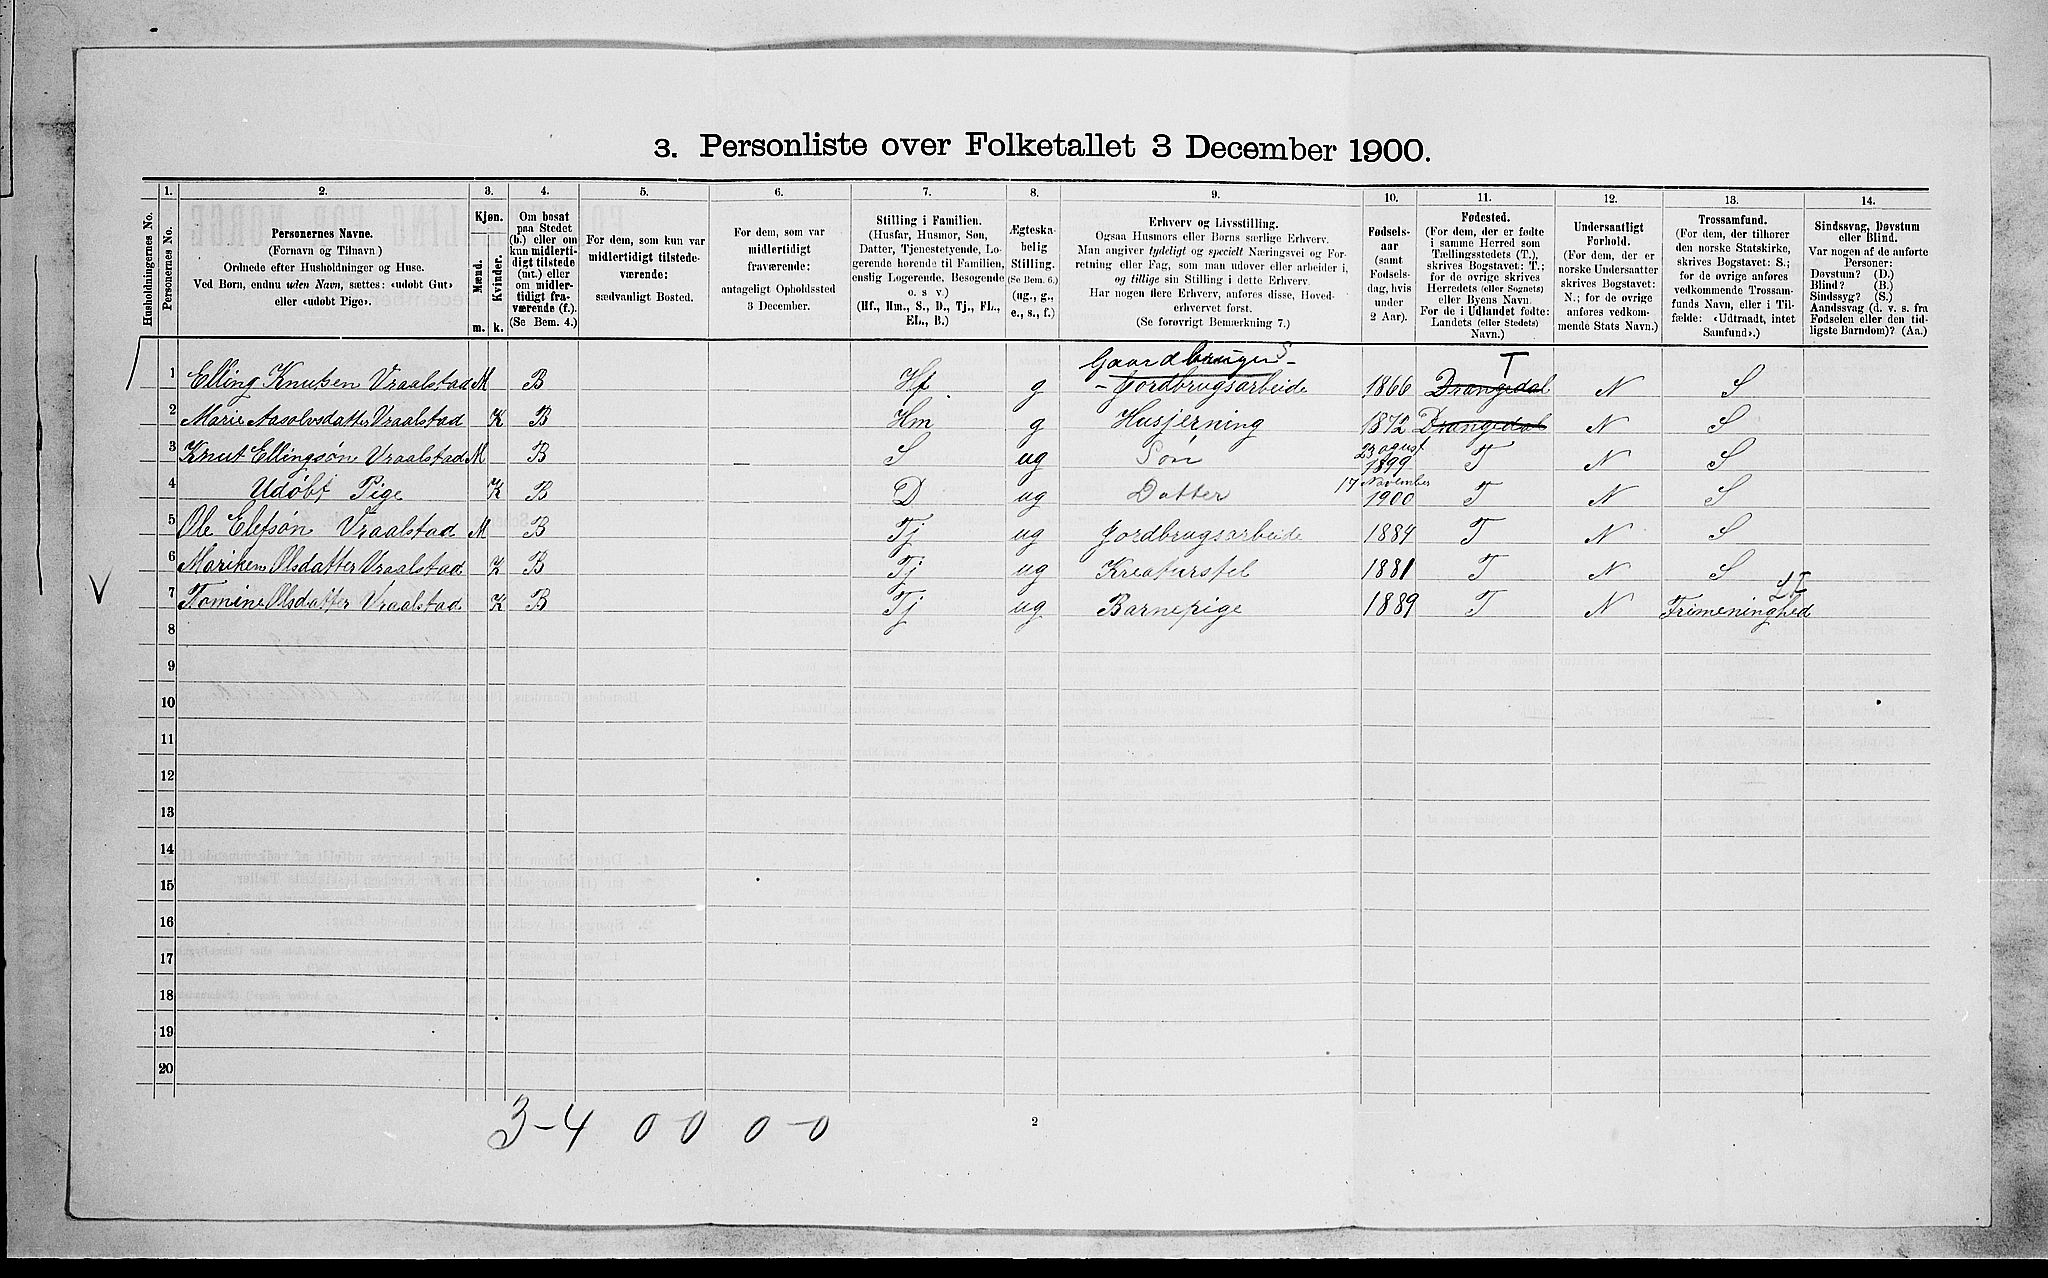 3. Personliste over Folketallet 3 December 1900.
1. 2. 3. 4. 5. 6. 7. 8. 9. 10. 11. 12. 13. 14.
Husholdningernes No.
Personernes No.
Personernes Navne.
(Fornavn og Tilnavn)
Ordnede efter Husholdninger og Huse.
Ved Børn, endnu uden Navn, sættes: «udøbt Gut»
eller «udøbt Pige».
Kjøn.
Mænd.
Kvinder.
m. k.
Om bosat
paa Stedet
(b.) eller om
kun midlerti-
digt tilstede
(mt.) eller
om midler-
tidigt fra-
værende (f.).
(Se Bem. 4.)
For dem, som kun var
midlertidigt tilstede-
værende:
sædvanligt Bosted.
For dem, som var
midlertidigt
fraværende:
antageligt Opholdssted
3 December.
Stilling i Familien.
(Husfar, Husmor, Søn,
Datter, Tjenestetyende, Lo-
gerende hørende til Familien,
enslig Logerende, Besøgende
o. s. v.)
(Hf., Hm., S., D., Tj., FL.,
EL., B.)
Ægteska-
belig
Stilling.
(Se Bem. 6.)
(ug., g.,
e., s., f.)
Erhverv og Livsstilling.
Ogsaa Husmors eller Børns særlige Erhverv.
Man angiver tydeligt og specielt Næringsvei og For-
retning eller Fag, som man udøver eller arbeider i,
og tillige sin Stilling i dette Erhverv.
Har nogen flere Erhverv, anføres disse, Hoved-
erhvervet først.
(Se forøvrigt Bemærkning 7.)
Fødsels-
aar
(samt
Fødsels-
dag, hvis
under
2 Aar).
Fødested.
(For dem, der er fødte
i samme Herred som
Tællingsstedets (T.),
skrives Bogstavet: T.;
for de øvrige skrives
Herredets (eller Sognets)
eller Byens Navn.
For de i Udlandet fødte:
Landets (eller Stedets)
Navn.)
Undersaatligt
Forhold.
(For dem, der er
norske Undersaatter
skrives Bogstavet:
N.; for de øvrige
anføres vedkom-
mende Stats Navn.)
Trossamfund.
(For dem, der tilhører
den norske Statskirke,
skrives Bogstavet: S.;
for de øvrige anføres
vedkommende Trossam-
funds Navn, eller i Til-
fælde: «Udtraadt, intet
Samfund».)
Sindssvag, Døvstum
eller Blind.
Var nogen af de anførte
Personer:
Døvstum? (D.)
Blind? (B.)
Sindssyg? (S.)
Aandssvag (d. v. s. fra
Fødselen eller den tid-
ligste Barndom)? (Aa.)
Gaardbruger S T
1 Elling Knutsen Vraalstad M B Hf g - Gordbrugsarbeide 1866 Drangedal N S
2 Marie Aasolvsdatter Vraalstad K B Hm g Husjerning 1872 Drangedal N S
3 Knut Ellingsøn Vraalstad M B S ug Søn 23 agust 1899 T N S
4 Udøbt Pige K B D ug Datter 17 November 1900 T N S
5 Ole Elefsøn Vraalstad M B Tj ug Gordbrugsarbeide 1884 T N S
6 Mariken Olsdatter Vraalstad K B Tj ug Kreaturstel 1881 T N S
7 Tomine Olsdatter Vraalstad K B Tj ug Barnepige 1889 T N Frimeninghed
8
9
10
11
12
13
14
15
16
17
18
19
20
3-4 0 0 0-0
2